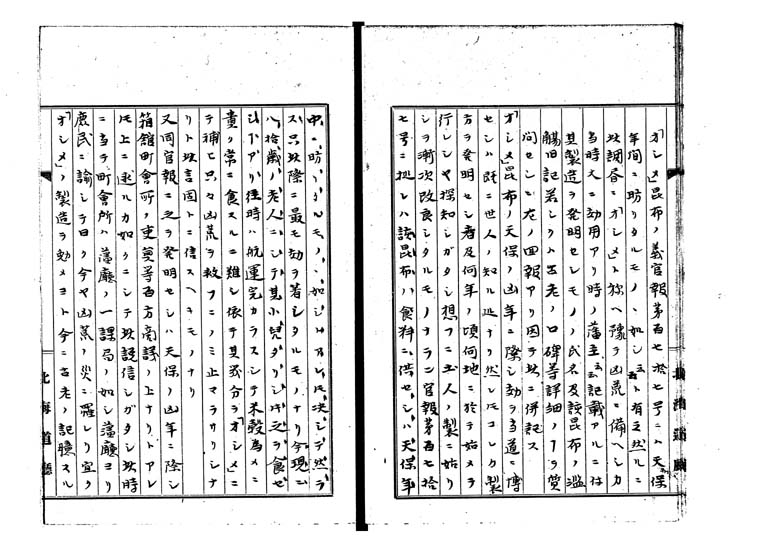 「オシメ」昆布ノ義官報第百七拾七号ニ「天保
年間ニ昉リタルモノヽ如シ云々ト有之然ルニ
坎調昏ニ「オシメ」ト称ヘ豫テ凶荒ニ備ヘシカ
当時大ニ効用アリ時ノ藩主云々記載アルニ付
其製造ヲ発明セシモノノ氏名及該昆布ノ濫
觴旧記若シクハ古老ノ口碑等詳細ノヿヲ質
問セシニ左ノ回報アリ因テ玆ニ併記ス
「オシメ」昆布ノ天保ノ凶年ニ際シ効ヲ当道ニ博
セシハ既ニ世人ノ知ル処ナリ然レ𪜈コレカ製
方ヲ発明セシ者及何年ノ頃何地ニ於テ始メラ
行レシヤ探知シガタシ想フニ土人ノ製ニ始リ
シヲ漸次改良シタルモノナラン官報第百七拾
七号ニ拠レハ該昆布ハ食料ニ供セシハ天保年
中ニ昉リタルモノヽ如シ
ス只坎際ニ最モ効ヲ著シタルモノナリ今現ニ
八拾歳ノ老人ニシテ其小児タリシ時之ヲ食セ
シヿアリ往時ハ航運完カラスシテ米穀為メニ
貴ク常ニ食スルニ難シ依テ其幾分ヲ「オシメ」ニ
テ補ヒ只々凶荒ヲ救フニノミ止マラサリシナ
リト坎言固ト信スヘキモノナリ
又同官報ニ之ヲ発明セシハ天保ノ凶年ニ際シ
箱舘町會所ノ吏員等百方商議ノ上ナリトアレ
𪜈上ニ述ルカ如クニシテ坎説信シガタシ坎時
ニ当テ町會所ハ藩廳ノ一課局ノ如シ藩廳ヨリ
庶民ニ諭シテ曰ク今ヤ凶荒ノ災ニ罹レリ宜ク
「オシメ」ノ製造ヲ勉メヨト今ニ古老ノ記臆スル
北海道廳